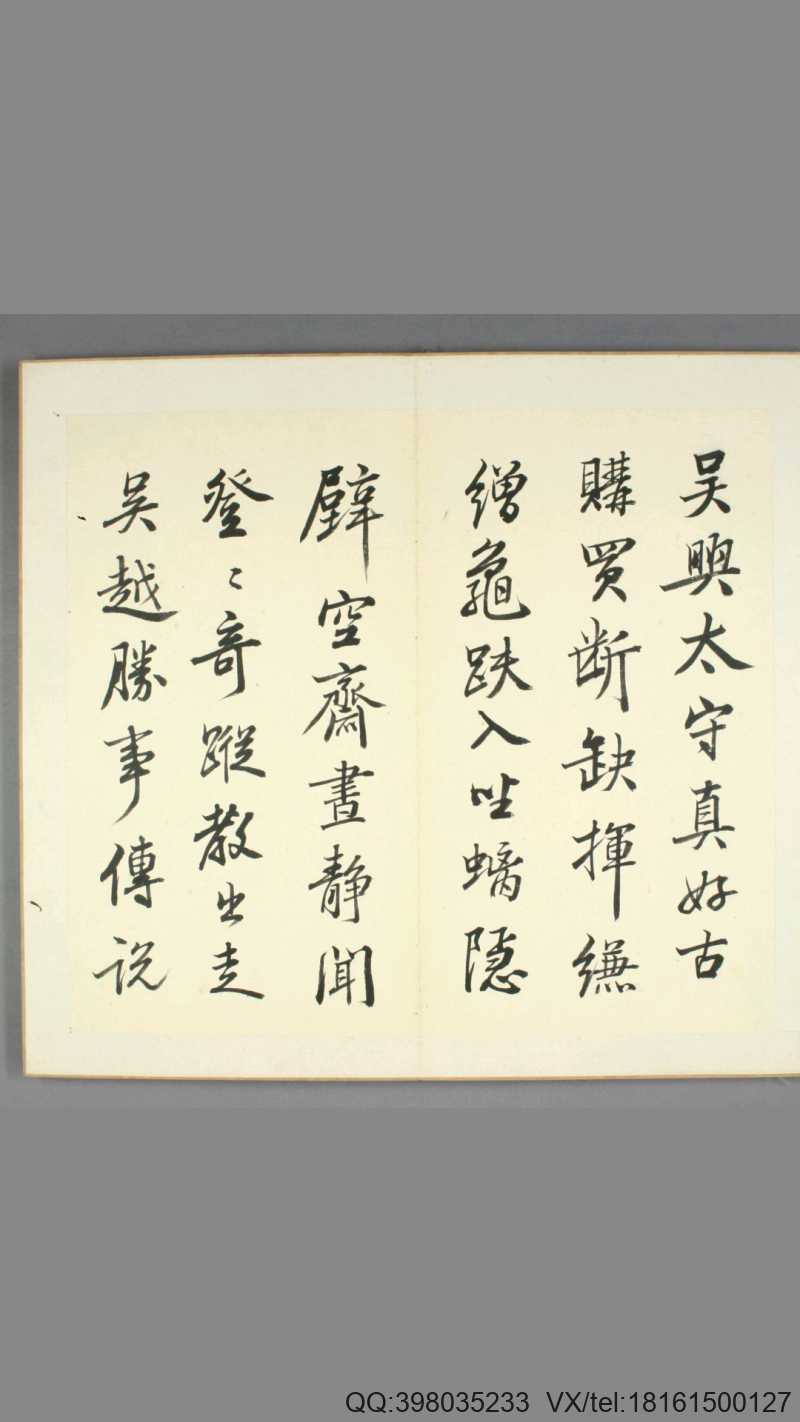 吴興太守真好古
購買断缺揮縑
繒龜趺入坐螭隠
壁空齋晝静聞
登〻奇蹤散出走
吴越勝事傳説
QQ:398035233 VX/tel:18161500127